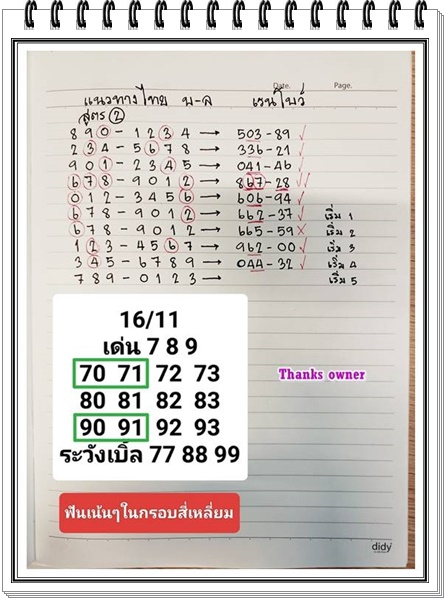 Date. Page.
แนวทางไทย บ-ล เรนโบว์
สูตร ②
890-1234 → 503-89 ✓
234-5678 → 336-21 ✓
901-2345 → 041-46
678-9012 → 867-28 ✓✓
012-3456 → 606-94 ✓
678-9012 → 662-37 ✓ เริ่ม 1
678-9012 → 665-59 × เริ่ม 2
123-4567 → 962-00 ✓ เริ่ม 3
345-6789 → 044-32 ✓ เริ่ม 4
789-0123 → เริ่ม 5
16/11
เด่น 7 8 9
70 71 72 73
80 81 82 83
90 91 92 93
ระวังเบิ้ล 77 88 99
Thanks owner
ฟันเน้นๆในกรอบสี่เหลี่ยม
didy